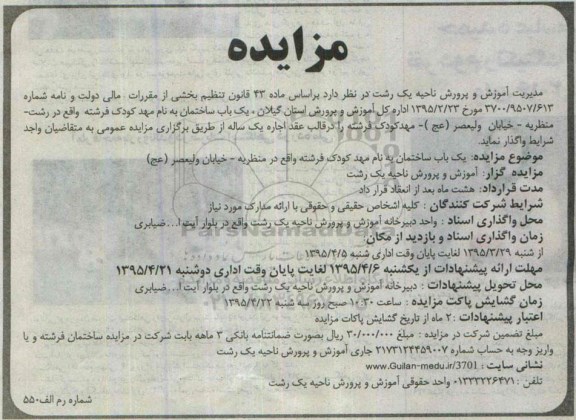 مزایده
مدیریت آموزش و پرورش ناحیه یک رشت در نظر دارد براساس ماده ۴۳ قانون تنظیم بخشی از مقررات مالی دولت و نامه شماره
۳۷۰۰/۹۵۰۷/۶۱۳ مورخ ۱۳۹۵/۲/۲۳ اداره کل آموزش و پرورش استان گیلان ، یک باب ساختمان به نام مهد کودک فرشته واقع در رشت-
منظریه - خیابان ولیعصر (عج )- مهدکودک فرشته را درقالب عقد اجاره یک ساله از طریق برگزاری مزایده عمومی به متقاضیان واجد
شرایط واگذار نماید.
موضوع مزایده: یک باب ساختمان به نام مهد کودک فرشته واقع در منظریه - خیابان ولیعصر (عج)
مزایده گزار: آموزش و پرورش ناحیه یک رشت
مدت قرارداد: هشت ماه بعد از انعقاد قرار داد
شرایط شرکت کنندگان : کلیه اشخاص حقیقی و حقوقی با ارائه مدارک مورد نیاز
محل واگذاری اسناد : واحد دبیرخانه آموزش و پرورش ناحیه یک رشت واقع در بلوار آیت ا... ضیابری
زمان واگذاری اسناد و بازدید از مکان:
از شنبه ۱۳۹۵/۳/۲۹ لغایت پایان وقت اداری شنبه ۱۳۹۵/۴/۵
مهلت ارائه پیشنهادات از یکشنبه ۱۳۹۵/۴/۶ لغایت پایان وقت اداری دوشنبه ۱۳۹۵/۴/۲۱
محل تحویل پیشنهادات : دبیرخانه آموزش و پرورش ناحیه یک رشت واقع در بلوار آیت ا... ضیابری
زمان گشایش پاکت مزایده : ساعت ۱۰:۳۰ صبح روز سه شنبه ۱۳۹۵/۴/۲۲
اعتبار پیشنهادات : ۲ ماه از تاریخ گشایش پاکات مزایده
مبلغ تضمین شرکت در مزایده : مبلغ ۳۰/۰۰۰/۰۰۰ ریال بصورت ضمانتنامه بانکی ۳ ماهه بابت شرکت در مزایده ساختمان فرشته و یا
واریز وجه به حساب شماره ۲۱۷۳۱۲۴۴۵۹۰۰۷ جاری آموزش و پرورش ناحیه یک رشت
نشانی سایت : www.Guilan-medu.ir/3701
تلفن : ۰۱۳۳۳۲۲۶۴۷۱ واحد حقوقی آموزش و پرورش ناحیه یک رشت
شماره رم الف-۵۵۰